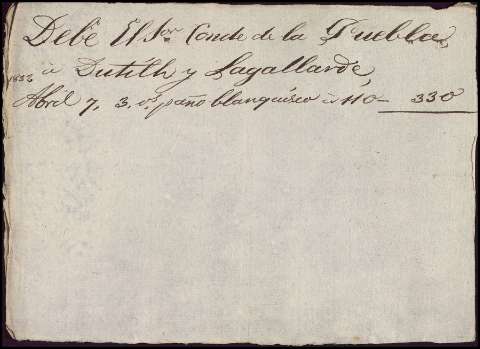 Debe El Sor. Conde de la Puebla
à Dutilh y Lagallarde,
1833
Abril 7, 3. vs. paño blanquisco à 110 - 330